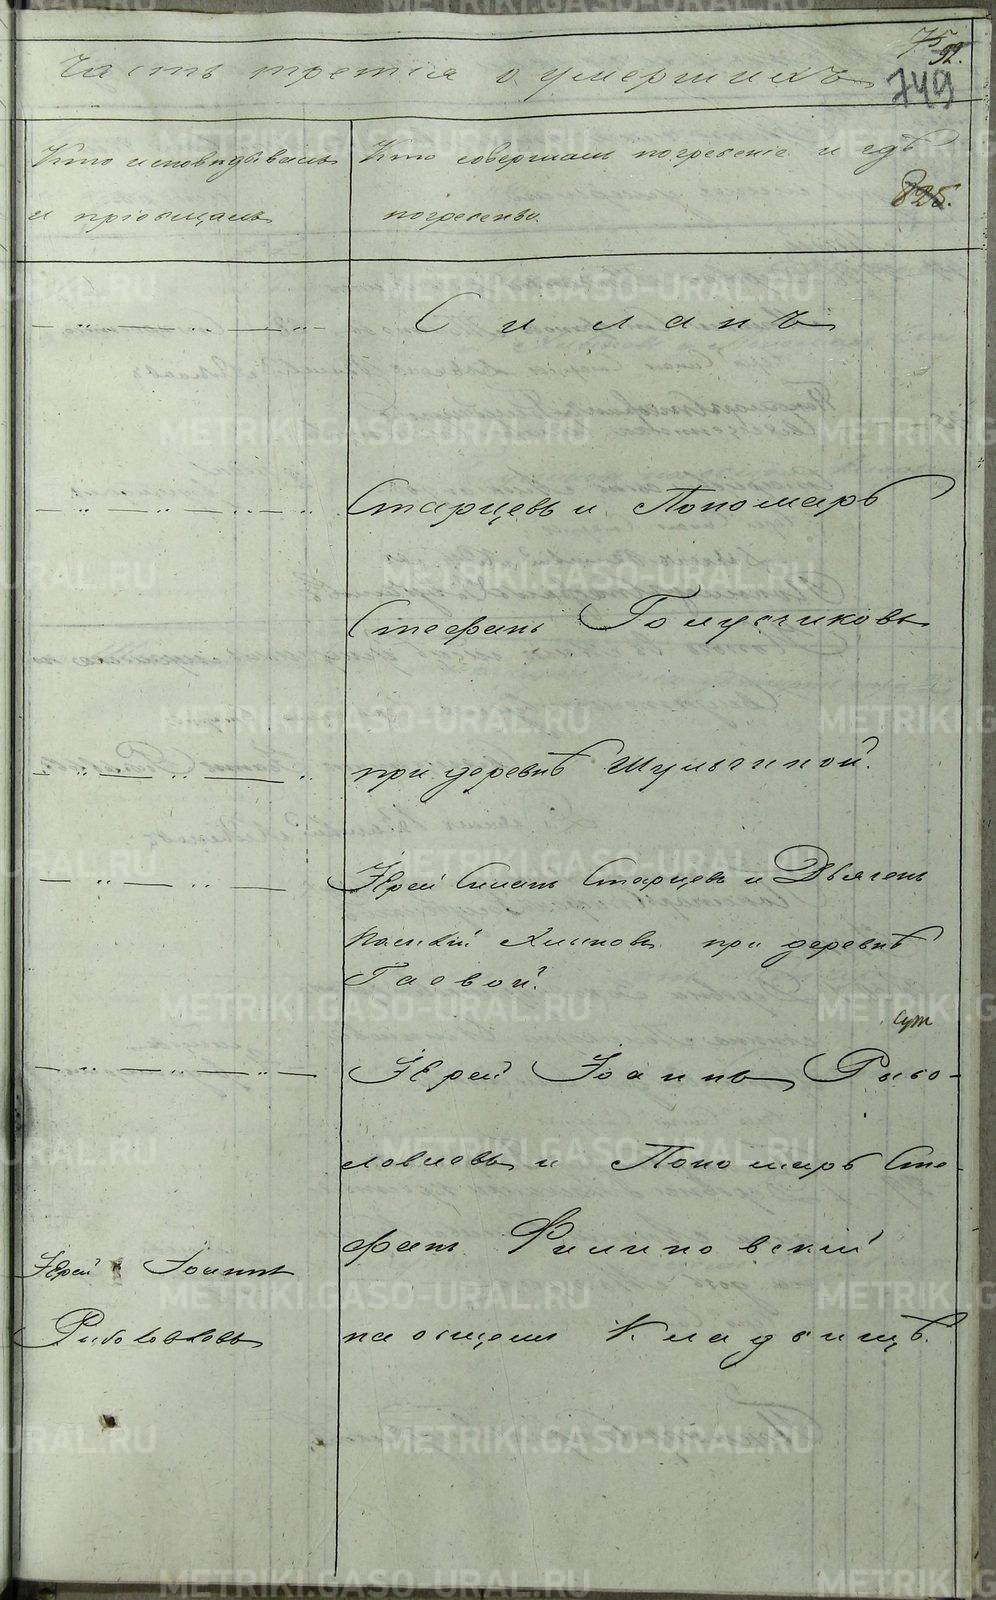 75
92.
Часть третія о умершихъ
749
Кто исповѣдывалъ
и пріобщалъ
Кто совершалъ погребеніе и гдѣ
погребены.
825.
— " — " — " —
Силанъ
— " — " — " — "
Старцевъ и Пономарь
Стефанъ Голубчиковъ
— " — " — "
при деревнѣ Шульгиной.
— " — " —
Іерей Силанъ Старцевъ и Дьячекъ
Хлыновъ при деревнѣ
Гаевой.
— " — " — " —
Іерей Іоаннъ Рыбо-
ловлевъ и Пономарь Сте-
фанъ Филиповскій
на общемъ Кладбищѣ.
Іерей Іоаннъ
Рыболовлевъ
METRIKI.GASO-URAL.RU